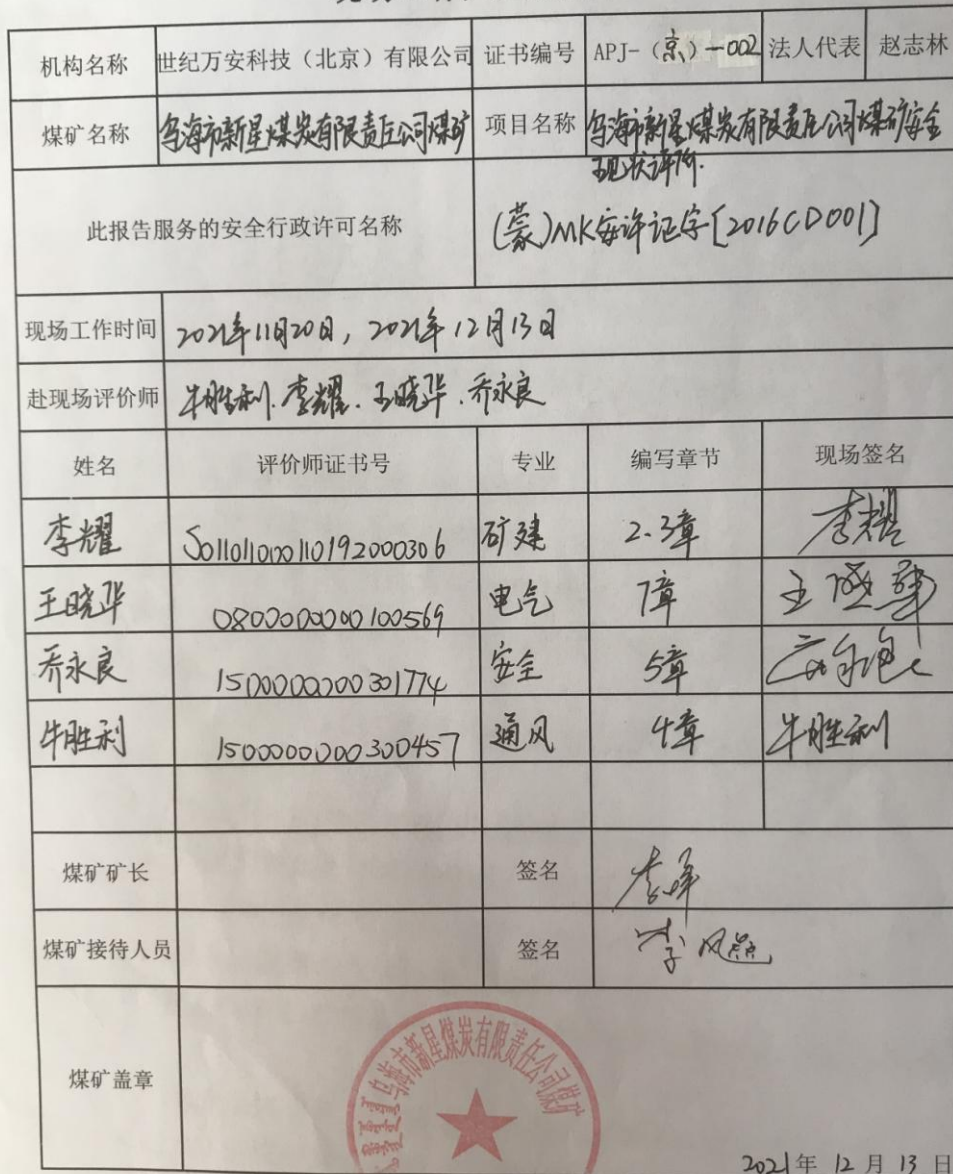 机构名称 世纪万安科技（北京）有限公司 证书编号 APJ-（京）-002 法人代表 赵志林
煤矿名称 乌海市新星煤炭有限责任公司煤矿 项目名称 乌海市新星煤炭有限责任公司煤矿安全
现状评价.
此报告服务的安全行政许可名称 (蒙)MK安许证字[2016CD001]
现场工作时间 2021年11月20日，2021年12月13日
赴现场评价师 牛胜利.李耀.王晓华.乔永良
姓名 评价师证书号 专业 编写章节 现场签名
李耀 S011011000110192000306 矿建 2.3章 李耀
王晓华 0800000000100569 电气 7章 王晓华
乔永良 1500000000301774 安全 5章
牛胜利 1500000000300457 通风 4章 牛胜利
煤矿矿长 签名
煤矿接待人员 签名
乌海市新星煤炭有限责任公司煤矿
煤矿盖章
2021年 12月 13日